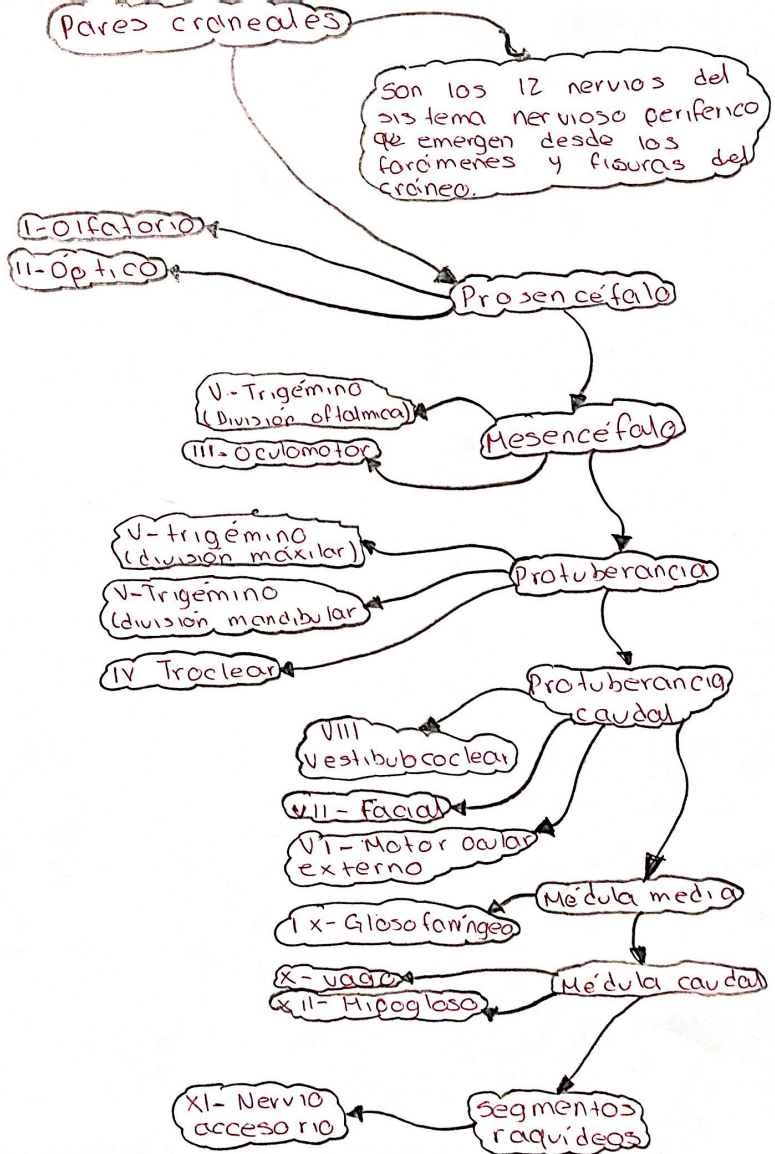 Pares craneales
Son los 12 nervios del
sistema nervioso periferico
que emergen desde los
forámenes y fisuras del
cráneo.
I-Olfatorio
II-Óptico
Prosencéfalo
V.-Trigémino
(División oftalmica)
III-Oculomotor
Mesencéfalo
V-trigémino
(división máxilar)
V-Trigémino
(división mandibular
IV Troclear
Protuberancia
Protuberancia
caudal
VIII
Vestibubcoclear
VII-Facial
VI-Motor ocular
externo
Médula media
IX-Glosofaríngeo
X-vago
XII-Hipogloso
Médula caudal
XI-Nervio
accesorio
segmentos
raquídeos